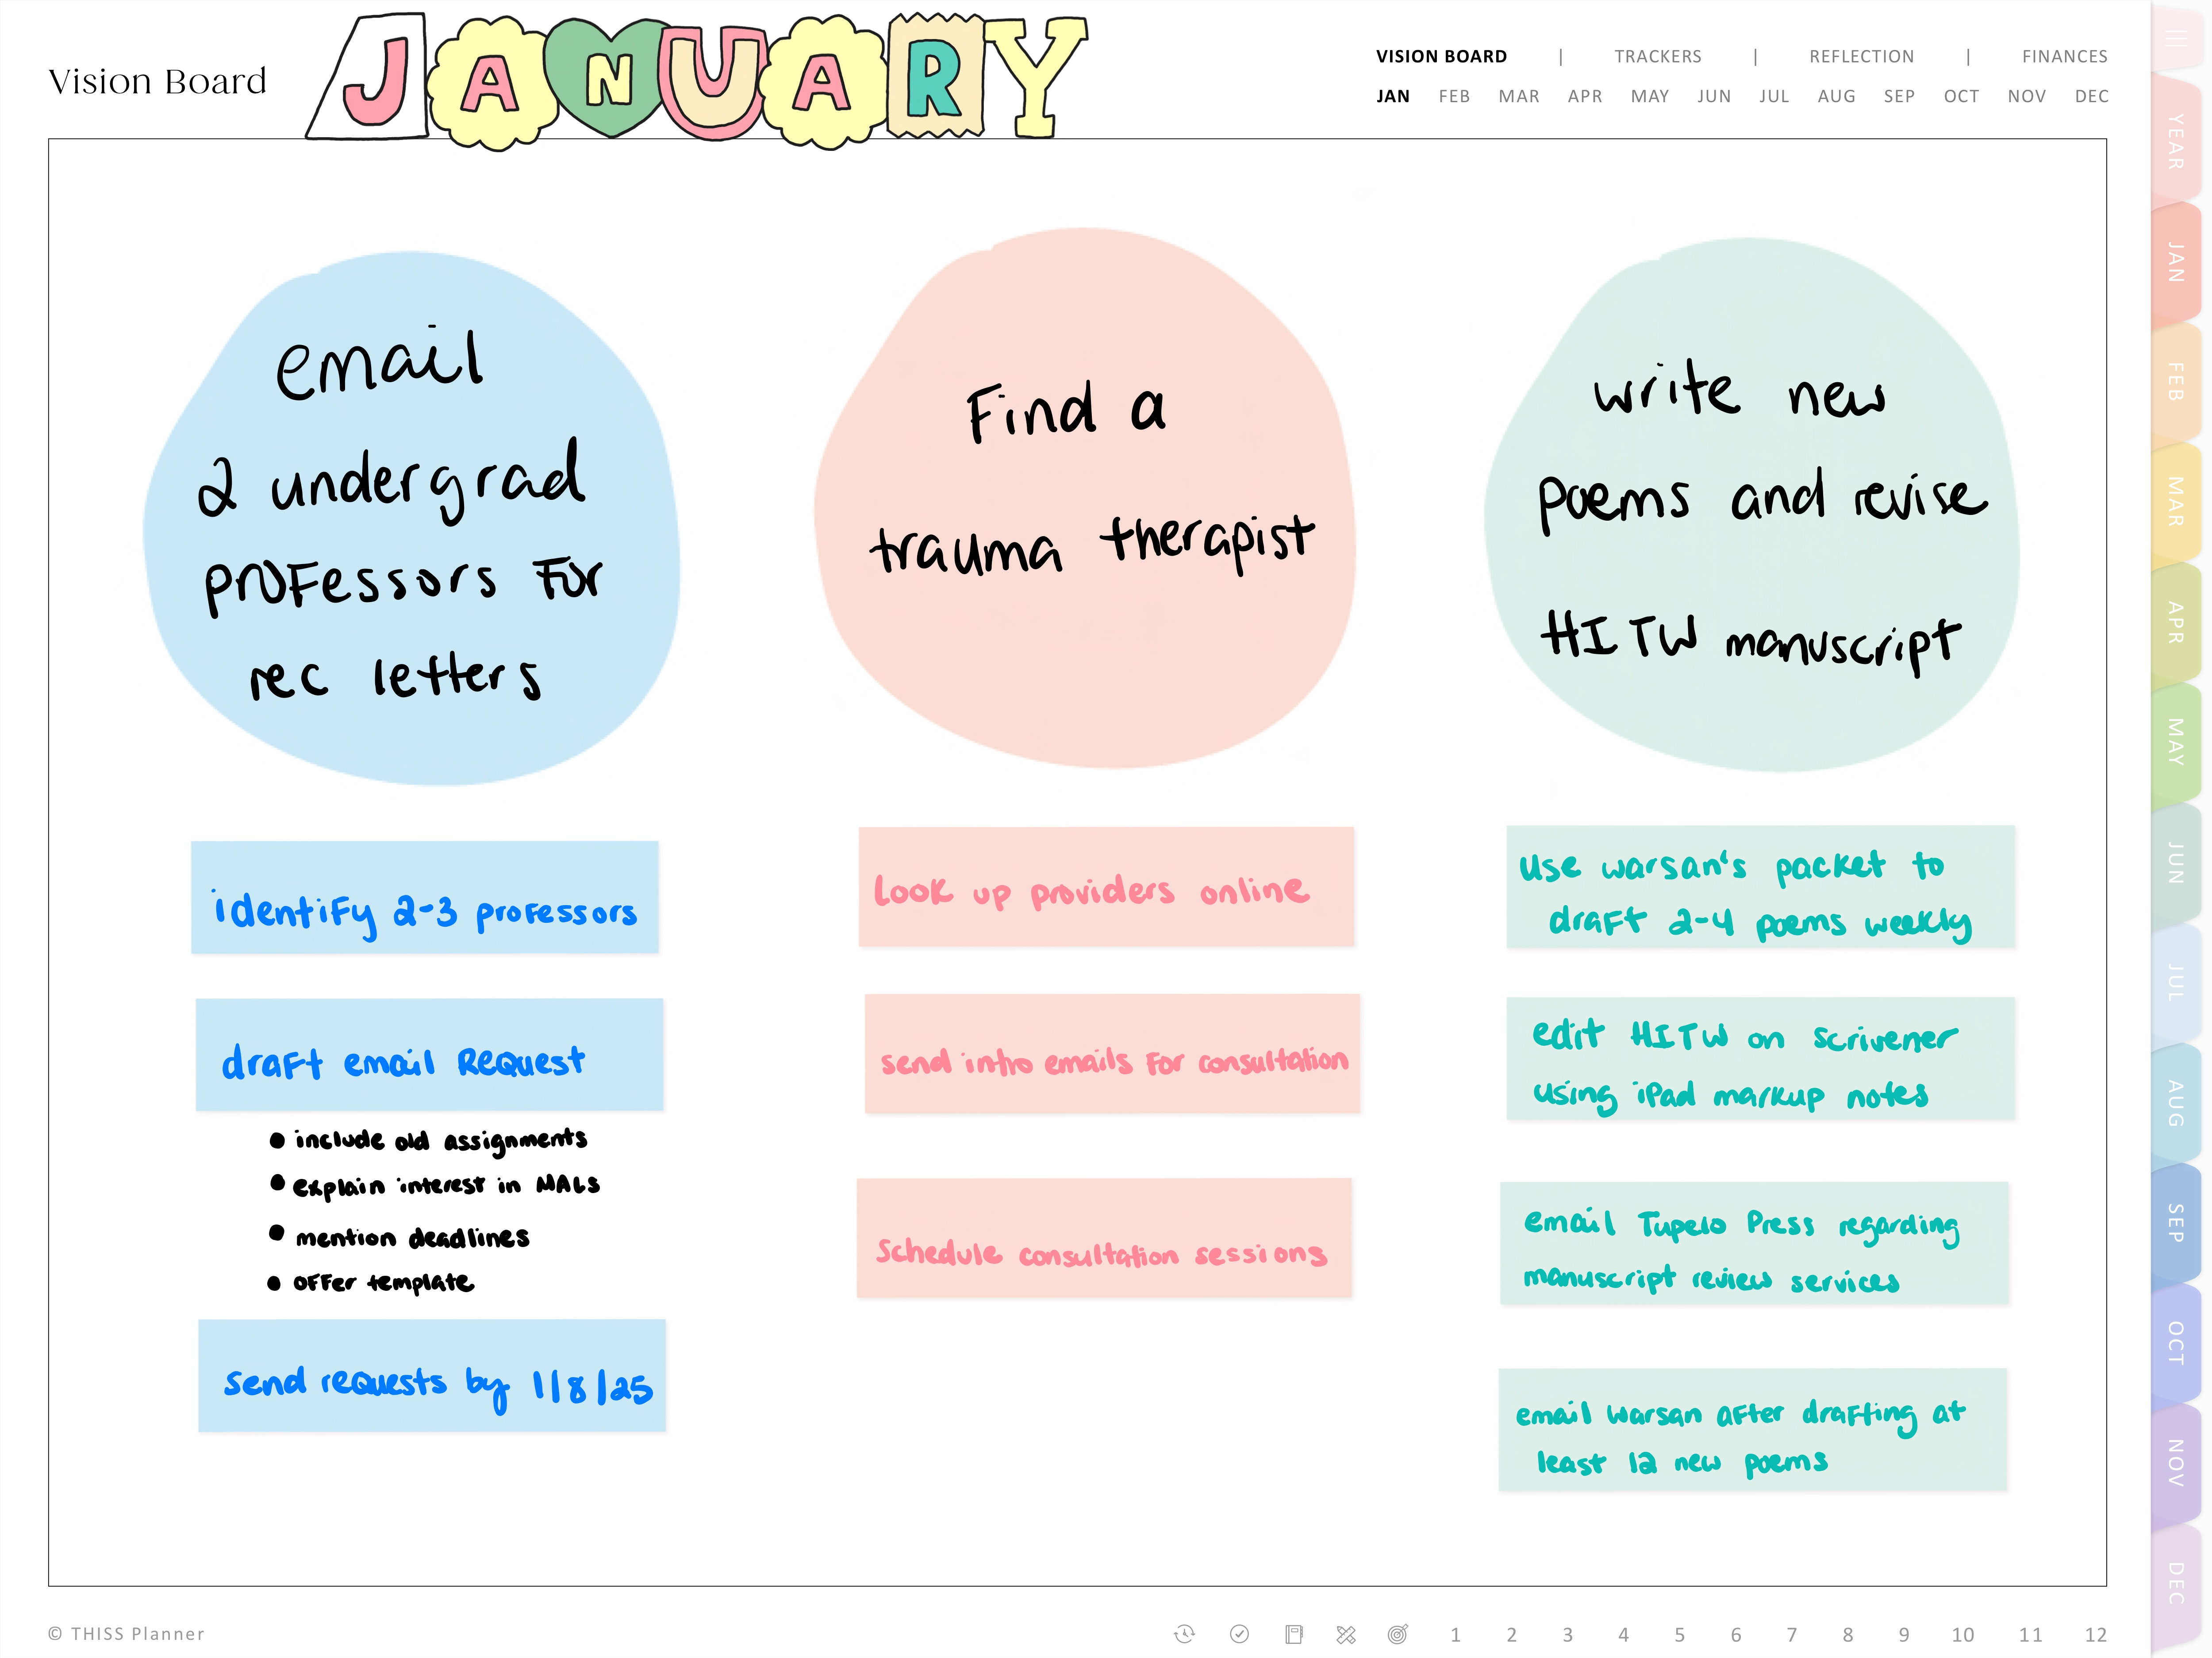 Vision Board
JANUARY
VISION BOARD | TRACKERS | REFLECTION | FINANCES
JAN FEB MAR APR MAY JUN JUL AUG SEP OCT NOV DEC
email
2 undergrad
professors for
rec letters
identify 2-3 professors
draft email Request
• include old assignments
• explain interest in MALS
• mention deadlines
• offer template
send requests by 1/8/25
Find a
trauma therapist
Look up providers online
send intro emails for consultation
Schedule consultation sessions
write new
poems and revise
HITW manuscript
Use warsan's packet to
draft 2-4 poems weekly
edit HITW on Scrivener
using iPad markup notes
email Tupelo Press regarding
manuscript review services
email warsan after drafting at
least 12 new poems
YEAR
JAN
FEB
MAR
APR
MAY
JUN
JUL
AUG
SEP
OCT
NOV
DEC
© THISS Planner
1 2 3 4 5 6 7 8 9 10 11 12